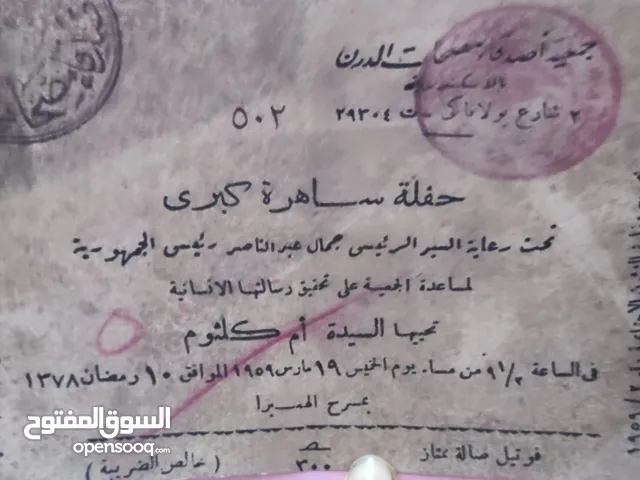 جمعية أصدقاء مصحات الدرن
بالاسكندرية
٢ شارع بولاناكى ت ٢٩٣٠٤
٥٠٢
حفلة ساهرة كبرى
تحت رعاية السيد الرئيس جمال عبد الناصر رئيس الجمهورية
لمساعدة الجمعية على تحقيق رسالتها الانسانية
تحييها السيدة أم كلثوم
فى الساعة ٩١/٢ من مساء يوم الخميس ١٩ مارس ١٩٥٩ الموافق ١٠ رمضان ١٣٧٨
بمسرح الهمبرا
فوتيل صالة ممتاز ٣٠٠ ( خالص الضريبة )
السوق المفتوح
opensooq.com